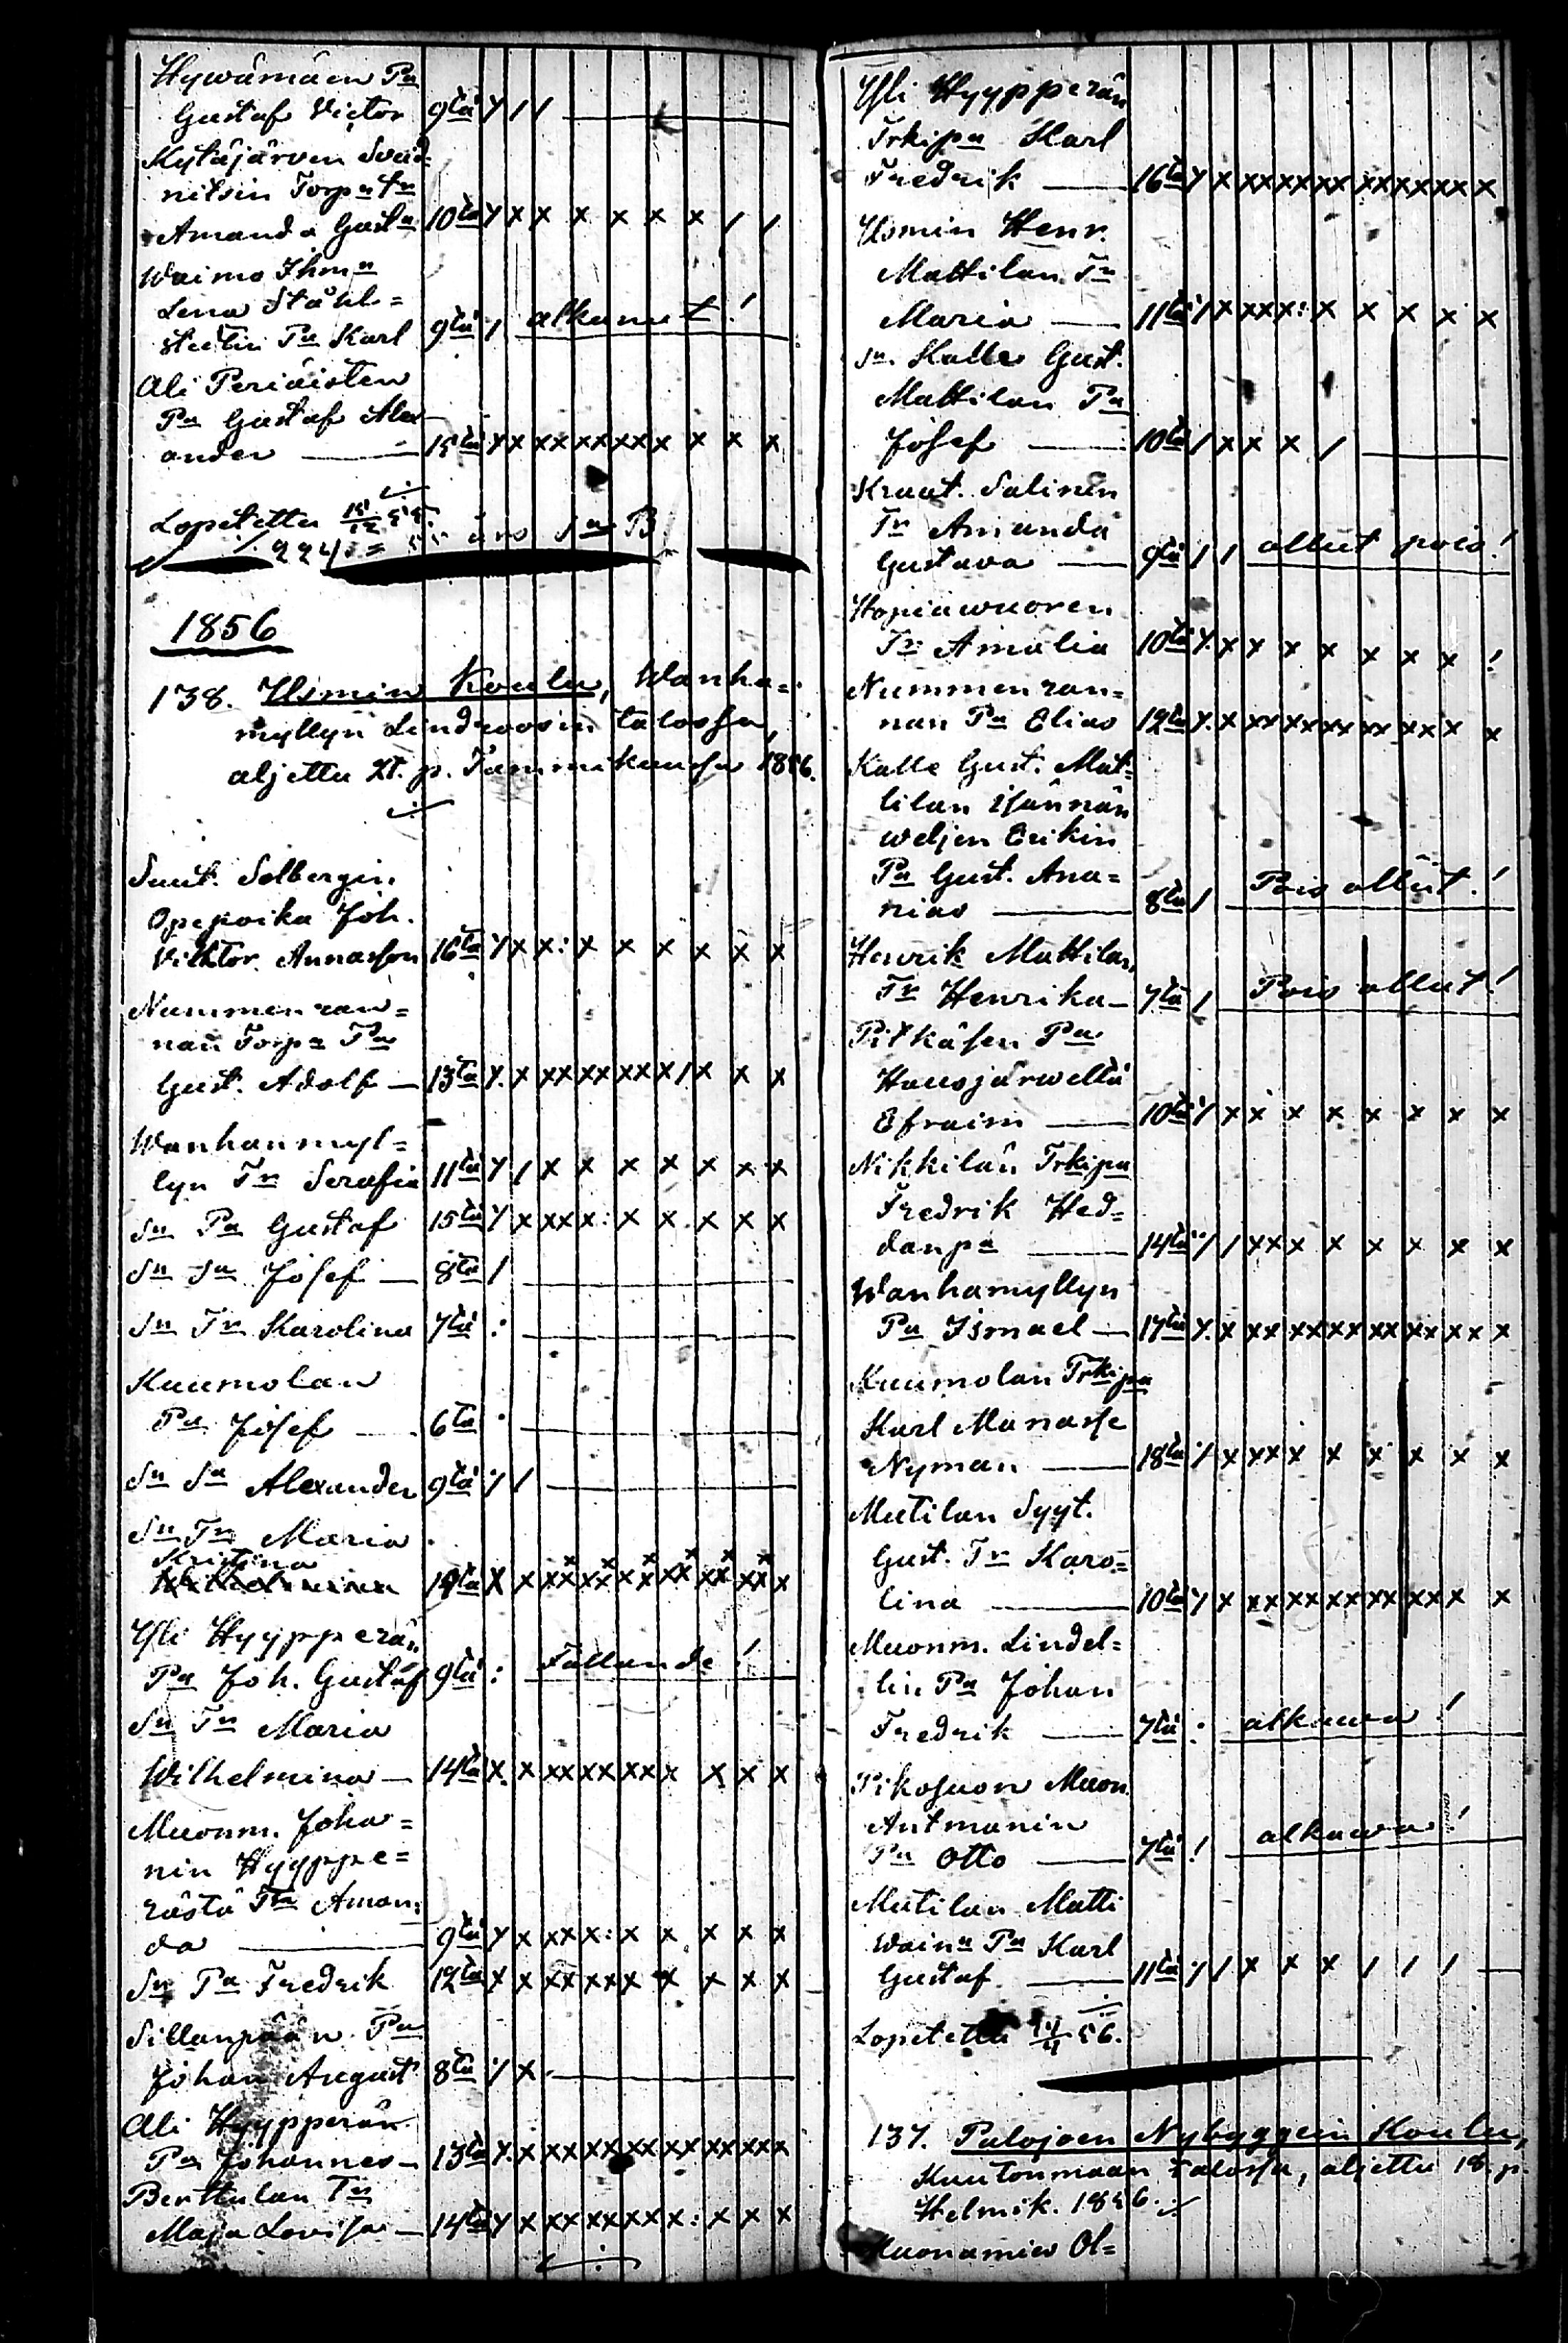 Hywämäen Pa
Gustaf Victor 9tä Y / /
Kytäjärven Svad=
nitsin Torpa tr
Amanda Gusta 10tä Y x x x x x x / /
Waimo Ihma
Lena Ståhl=
stedtin Pa Karl 9tä / alkanut!
Ali Periäisten
Pa Gustaf Alex
ander 15tä Y x xx xxxx x x x x
Lopetettu
1856
138. Usmin Koulu, Wanha=
myllyn Lindroosin talossa,
aljettu 21. p. Tammikuussa 1856.
Suut. Solbergin
Opepoika Joh.
Viktor Annasson 16ta Y x x: x x x x x x
Nummenran=
nan Torpa Pa
Gust. Adolf 13ta Y. x xx xx xx x / x x x
Wanhanmyl=
lyn Tr Serafia 11tä Y / x x x x x x x
Sn Pa Gustaf 15tä Y x xxx: x x x x x
Sn Sa Josef 8ta /
Sn Tr Karolina 7tä :
Kuumolan
Pa Josef 6ta .
Sn Sa Alexander 9tä Y /
Sn Tr Maria
Kristina
Wilhelmina 14ta X x xx xx xx xx xx xx x
Yli Hyypperän
Pa Joh. Gustaf 9tä : Fallande!
Sn Tr Maria
Wilhelmina 14ta X. x xx xx xx x x x x
Muonm. Joha=
nin Hyyppe=
rästä Tr Aman=
da 9tä Y x xxx: x x x x x
Sn Pa Fredrik 12ta X x xx xx x x x x x
Sillanpään Pa
Johan August 8ta Y x
Ali Hyypperän
Pa Johannes 13ta Y. x xx xx xx xx xx xx
Berttulan Tr
Maja Lovisa 14ta Y x xx xx xx: x x x
Yli Hyypperän
Trkipa Karl
Fredrik 16ta Y x xx xx xx xx xx xx x
Usmin Henr.
Mattilan Tr
Maria 11tä Y x xxx: x x x x x
Sn. Kalle Gust.
Mattilan Pa
Josef 10tä / x x x /
Kraat. Salinin
Tr Amanda
Gustava 9tä / / ollut pois!
Hopiawuoren
Tr Amalia 10tä Y. x x x x x x x !
Nummenran=
nan Pa Elias 12ta Y. x xx xx xx xx xx x x
Kalle Gust. Mat=
tilan isännän
weljen Erikin
Pa Gust. Ana=
nias 8ta / Pois ollut!
Henrik Mattilan
Tr Henrika 7tä / Pois ollut!
Pitkäsen Pa
Hausjärwellä
Efraim 10tä Y x x x x x x x x
Nikkilän Trkipa
Fredrik Hed=
danpa 14ta Y / xx x x x x x x
Wanhamyllyn
Pa Ismael 17ta Y. x xx xx xx xx xx x x
Kuumolan Trkipa
Karl Manasse
Nyman 18ta Y x xx x x x x x x
Mutilan Syyt.
Gust. Tr Karo=
lina 10tä Y x xx xx xx xx xx x x
Muonm. Lindel=
lin Pa Johan
Fredrik 7tä : alkawa!
Pikosuon Muon.
Antmanin
Pa Otto 7tä ! alkawa!
Mutilan Matti
Waina Pa Karl
Gustaf 11tä Y / x x x / / /
Lopetettu 14/4 56.
137. Palojoen Nybyggein Koulu,
Kuutonmaan talossa, aljettu 18. p.
Helmik. 1856.
Muonamies Ol=